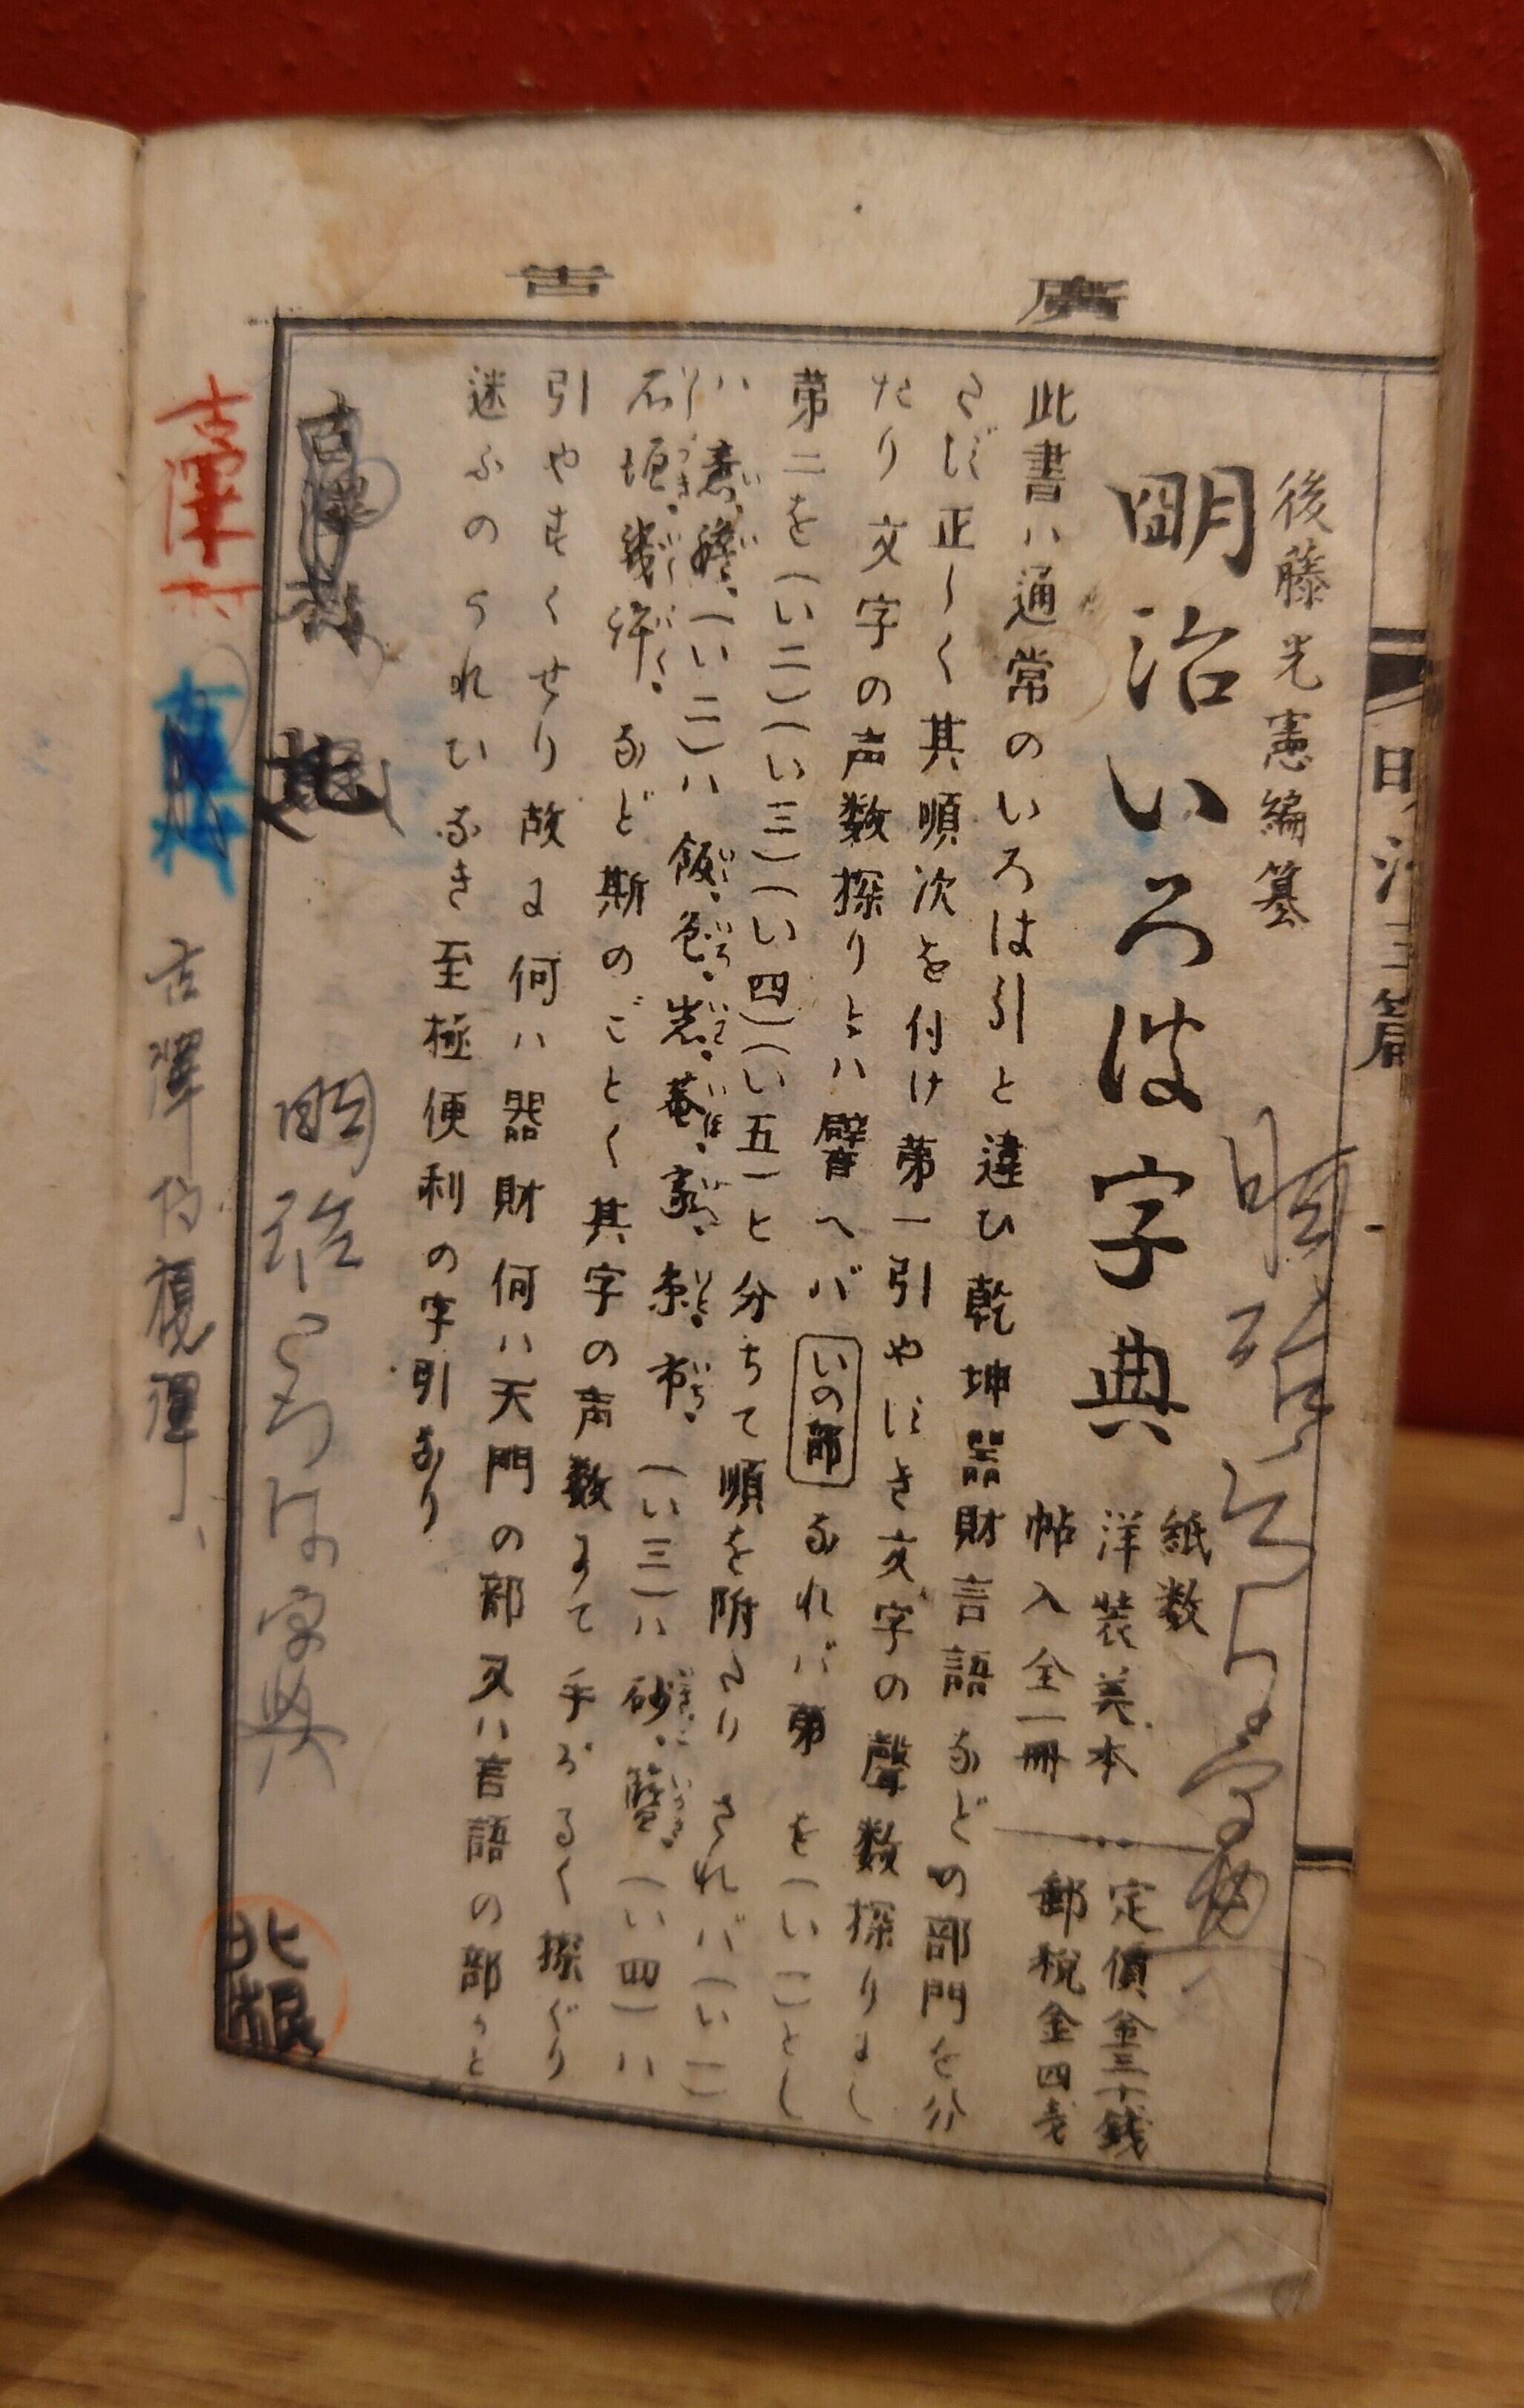 廣告
明治三篇
後藤光憲編纂
明治いろは字典
紙数
洋装美本
帖入全一冊
定價金三十銭
郵税金四戔
此書ハ通常のいろは引と違ひ乾坤器財言語などの部門を分
さず正しく其順次を付け第一引やすき文字の聲数探りよし
たり文字の声数探りとハ譬へバいの部なれバ第一を(い一)とし
第二を(い二)(い三)(い四)(い五)と分ちて順を附たりされバ(い一)
ハ意、膽、(い二)ハ飯、色、岩、菴、家、糸、市、(い三)ハ砂、(い四)ハ
石垣、幾許、など斯のごとく其字の声数よて手がるく探ぐり
引やすくせり故に何ハ器財何ハ天門の部又ハ言語の部かと
迷ふのうれひなき至極便利の字引なり
明治いろは字典
明治いろは字典
古澤
古澤
北
北根
古澤